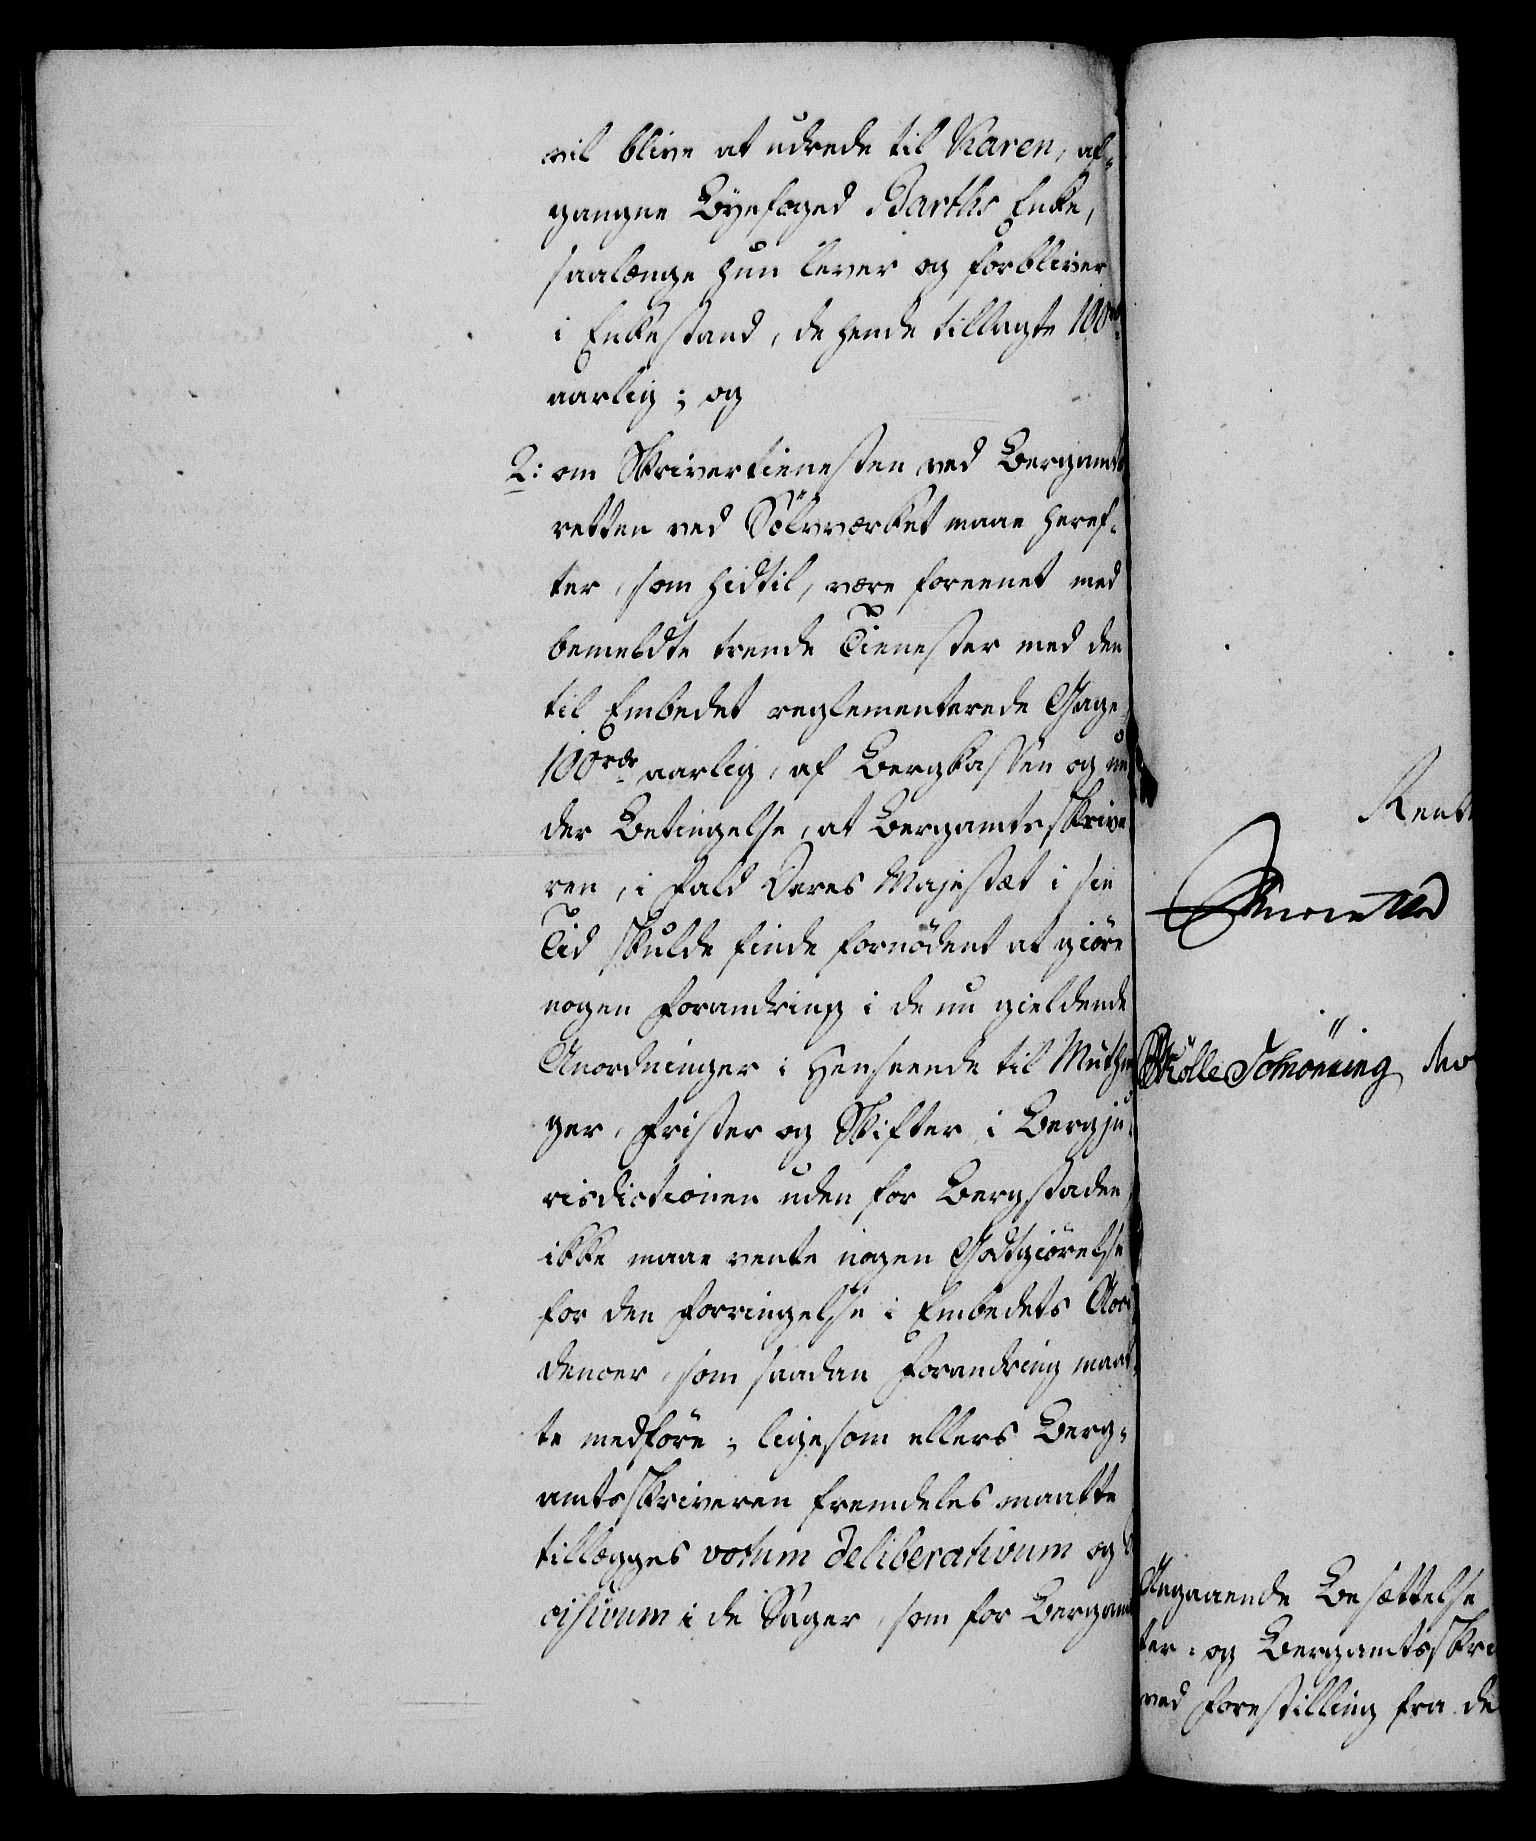 vil blive at udrede til Karen, af-
gangne Byefoged Barths Enke,
saalænge hun lever og forbliver
i Enkestand, de hende tillagte 100 rd
aarlig; og
2: om Skrivertienesten ved Bergamts
retten ved Sölvværket maae heref-
ter, som hidtil, være foreenet med
bemeldte trende Tienester med den
til Embedet reglementerede Gage
100 rdr aarlig, af Bergkassen og un
der Betingelse, at Bergamtsskrive
ren, i fald Deres Majestæt i sin
Tid skulde finde fornödent at giöre
nogen Forandring i de nu gieldende
Anordninger i Henseende til Muthin
ger, Frister og Skifter i Bergju-
risdictionen uden for Bergstaden
ikke maae vente nogen Godtgiörelse
for den Forringelse i Embedets Acci
dencer, som saadan Forandring maat-
te medföre; ligesom ellers Berg-
amtsskriveren fremdeles maatte
tillægges votum deliberativum og
cisivum i de Sager, som for Bergam
Rent
Schönning
Angaaende Besættelse
ter- og Bergamtsskri
ved Forestilling fra de